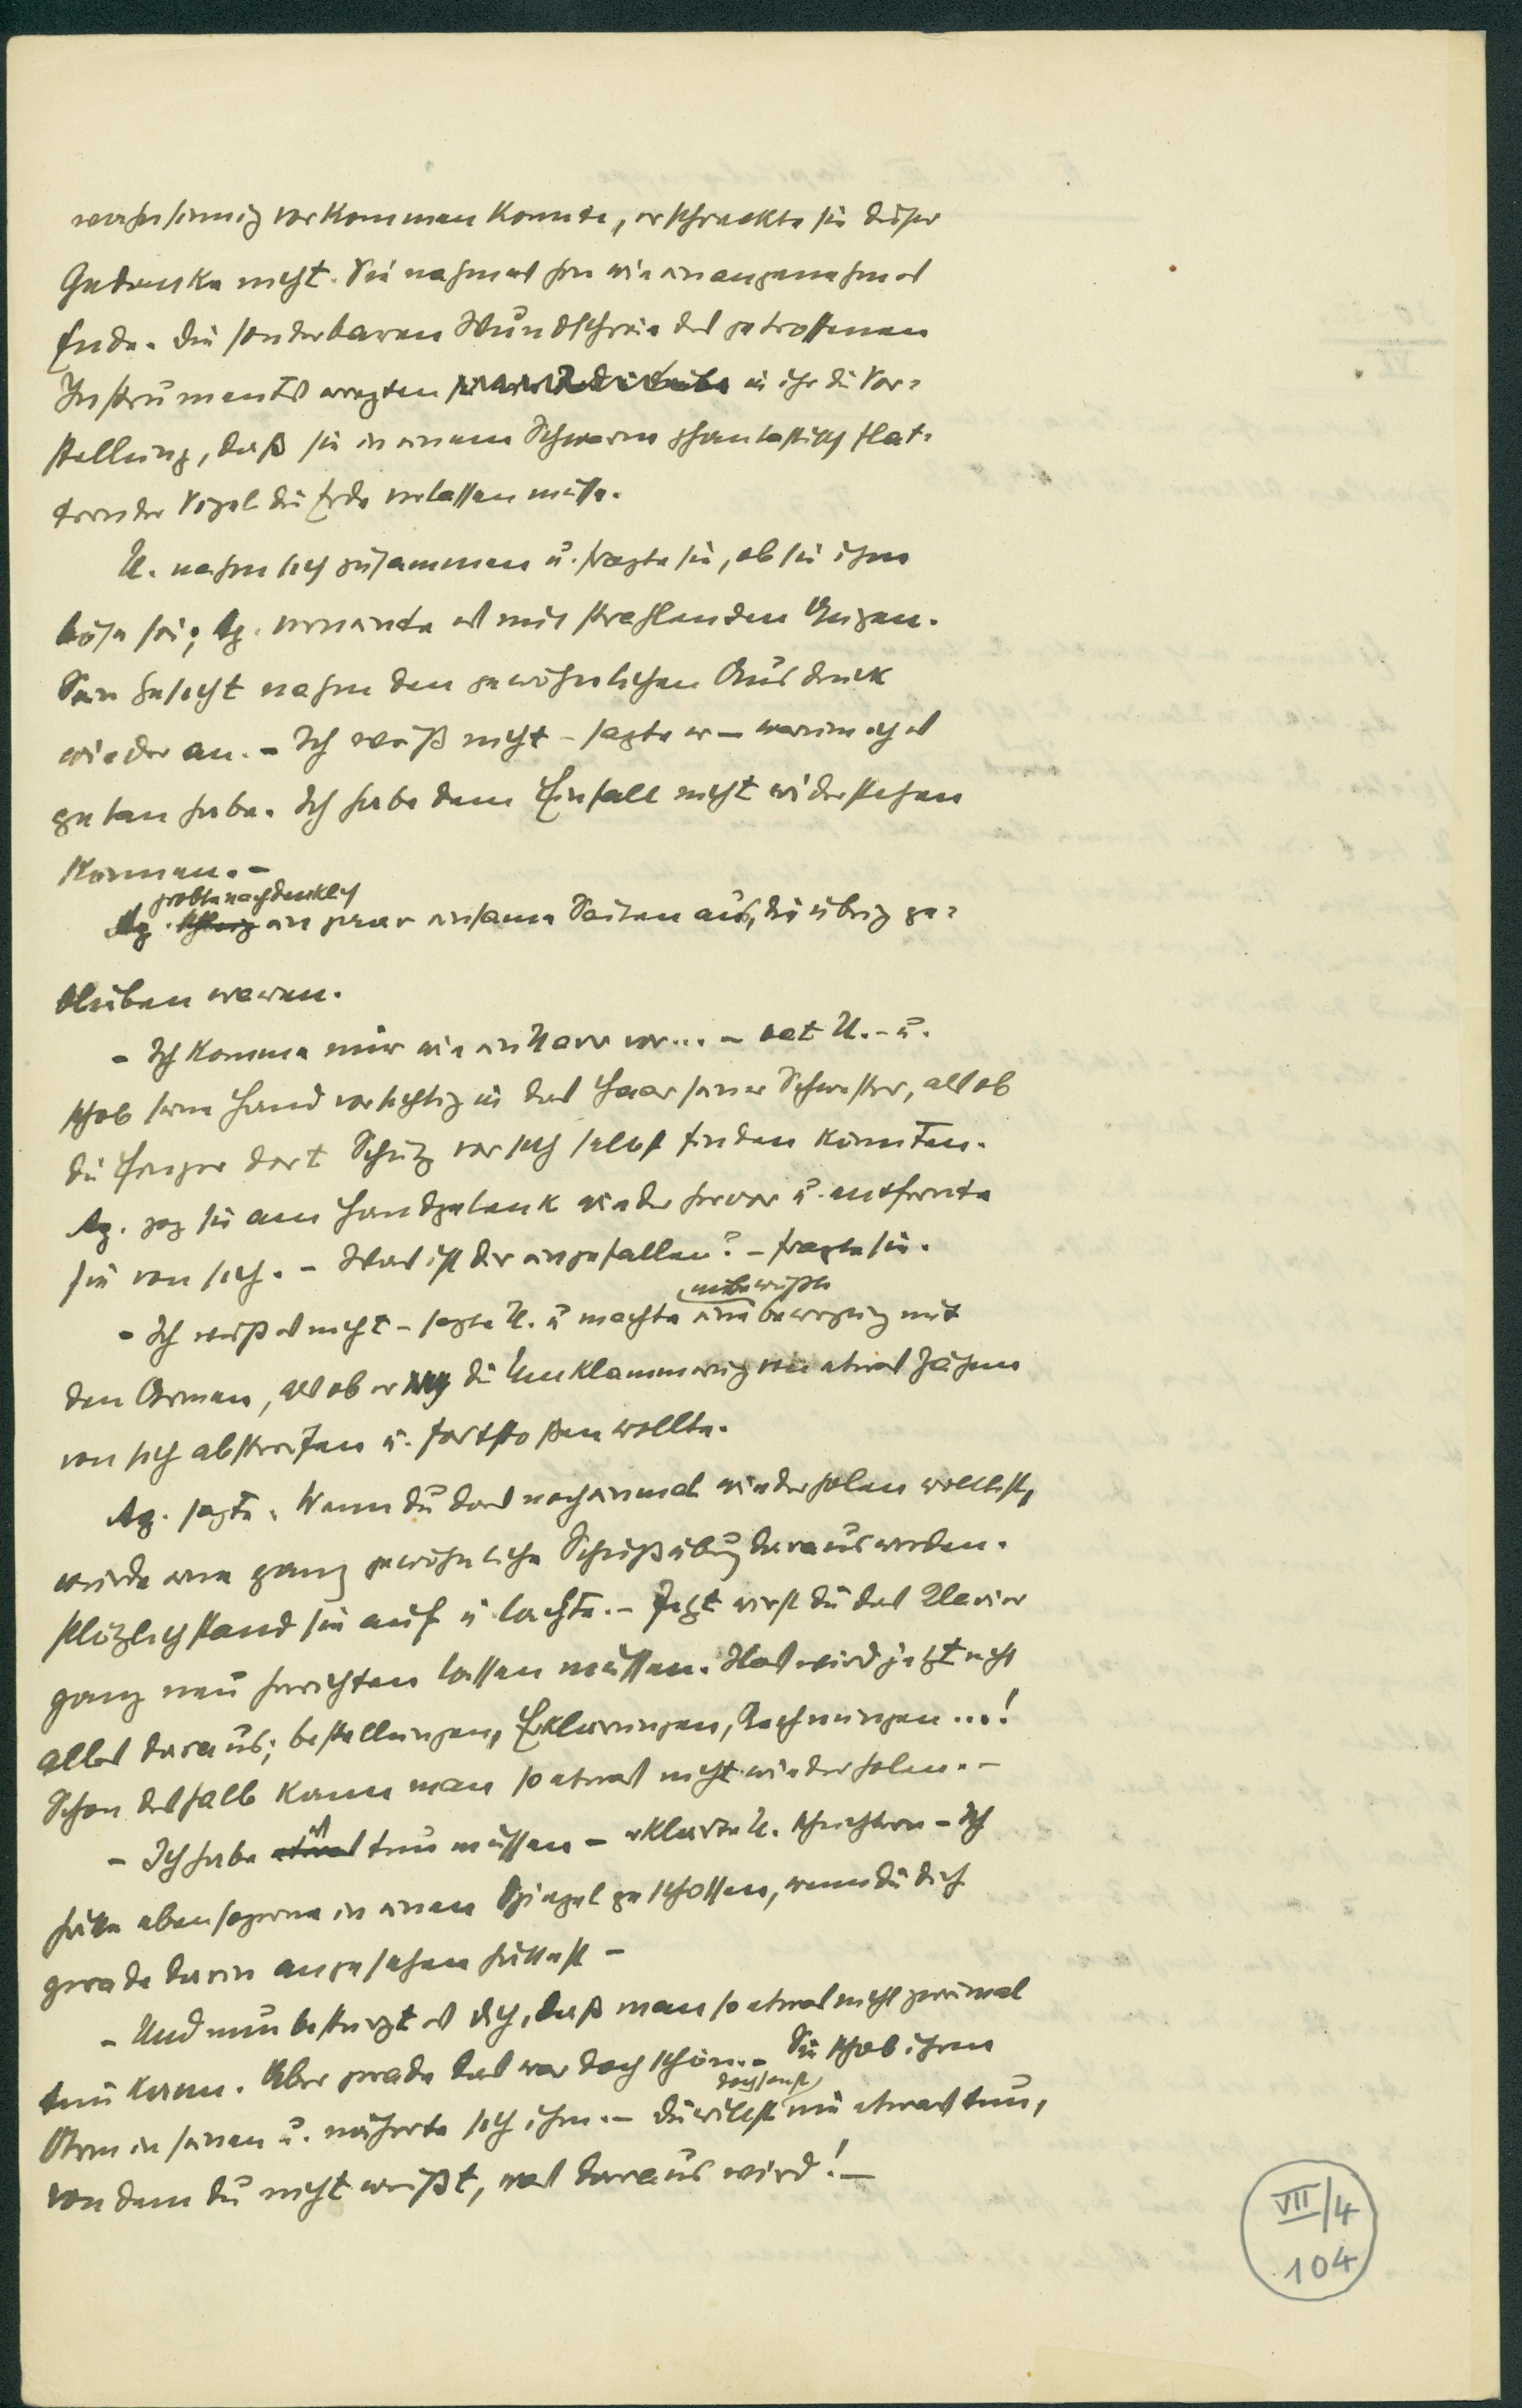 wahnsinnig vorkommen konnte, erschreckte sie dieser
Gedanke nicht. Sie nahm es hin wie ein angenehmes
Ende. Die sonderbaren Wundschreie des getroffenen
Instruments erregten in ihr die Vor-
stellung, daß sie in einem Schwarm phantastisch flat-
ternder Vögel die Erde verlassen müsse.
U. nahm sich zusammen u. fragte sie, ob sie ihm
böse sei; Ag. verneinte es mit strahlenden Augen.
Sein Gesicht nahm den gewöhnlichen Ausdruck
wieder an. – Ich weiß nicht – sagte er – warum ich es
getan habe. Ich habe dem Einfall nicht widerstehen
können. –
probte nachdenklich
Ag. schlug ein paar einsame Saiten aus, die übrig ge-
blieben waren.
– Ich komme mir wie ein Narr vor... – bat U. – u.
schob seine Hand vorsichtig in das Haar seiner Schwester, als ob
die Finger dort Schutz vor sich selbst finden könnten.
Ag. zog sie am Handgelenk wieder hervor u. entfernte
sie von sich. – Was ist dir eingefallen? – fragte sie.
unbewußte
– Ich weiß es nicht – sagte U. u machte eine Bewegung mit
den Armen, als ob er die Umklammerung von etwas Zähem
von sich abstreifen u. fortstoßen wollte.
Ag. sagte: Wenn du das noch einmal wiederholen wolltest,
würde eine ganz gewöhnliche Schießübung daraus werden.
Plötzlich stand sie auf u lachte. – Jetzt wirst du das Klavier
ganz neu herrichten lassen müssen. Was wird jetzt nicht
alles daraus; Bestellungen, Erklärungen, Rechnungen...!
Schon deshalb kann man so etwas nicht wiederholen. –
es
– Ich habe etwas tun müssen – erklärte U. schüchtern – Ich
hätte ebensogerne in einen Spiegel geschossen, wenn du dich
gerade darin angesehen hättest –
– Und nun bestürzt es dich, daß man so etwas nicht zweimal
tun kann. Aber gerade das war doch schön. – Sie schob ihren
doch sonst
Arm in seinen u. näherte sich ihm. – Du willst nie etwas tun,
von dem du nicht weißt, was daraus wird! –
VII/4
104